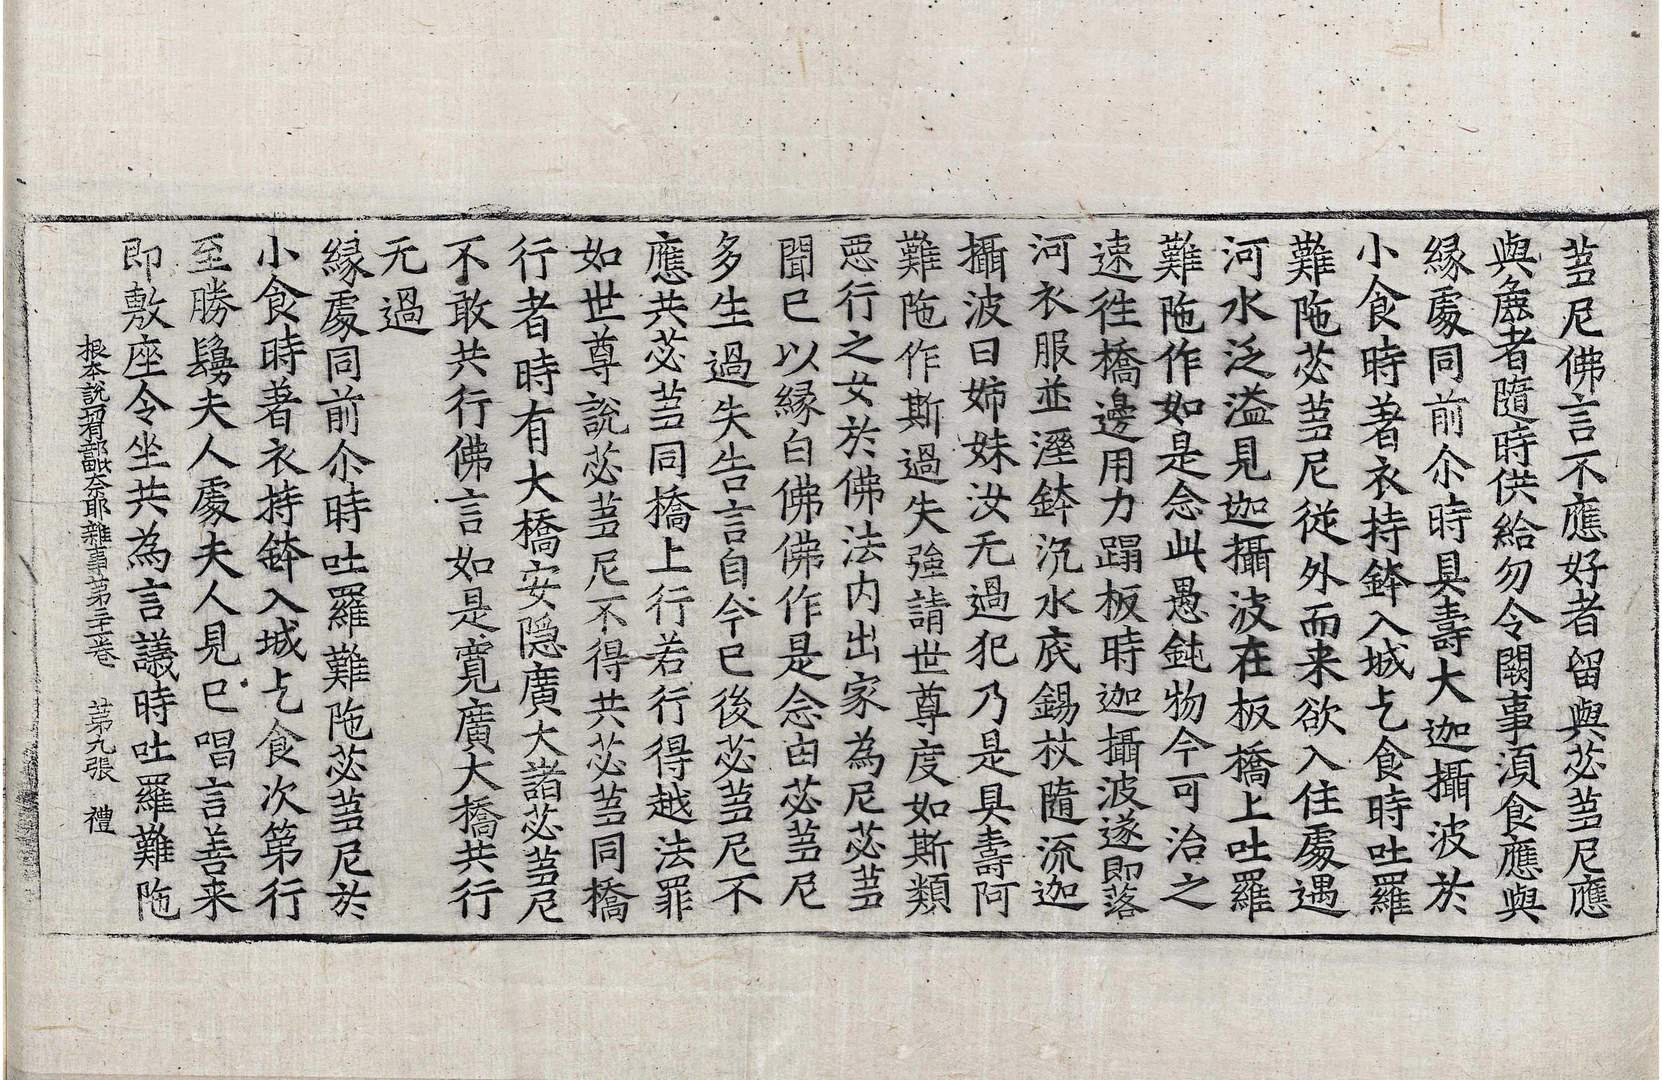 苾尼佛言不應好者留與苾芻尼應
與麁者隨時供給勿令闕事湏食應與
縁䖏同前尒時具壽大迦攝波於
小食時著衣持鉢入城乞食時吐羅
難陁苾芻尼從外而来欲入住䖏遇
河水泛溢見迦攝波在板橋上吐羅
難陁作如是念此愚鈍物今可治之
速徃橋邊用力蹋板時迦攝波遂即落
河衣服並溼鉢沉水底錫杖隨流迦
攝波曰姉妹汝无過犯乃是具壽阿
難陁作斯過失強請世尊度如斯類
惡行之女於佛法内出家為尼苾芻
聞已以縁白佛佛作是念由苾芻尼
多生過失告言自今已後苾芻尼不
應共苾芻同橋上行若行得越法罪
如世尊說苾芻尼不得共苾芻同橋
行者時有大橋安隠廣大諸苾芻尼
不敢共行佛言如是寬廣大橋共行
无過
縁䖏同前尒時吐羅難陁苾芻尼於
小食時著衣持鉢入城乞食次第行
至勝鬘夫人䖏夫人見已唱言善来
即敷座令坐共為言議時吐羅難陁
根本說一切有部毗奈耶雜事第三十二卷　第九張　禮